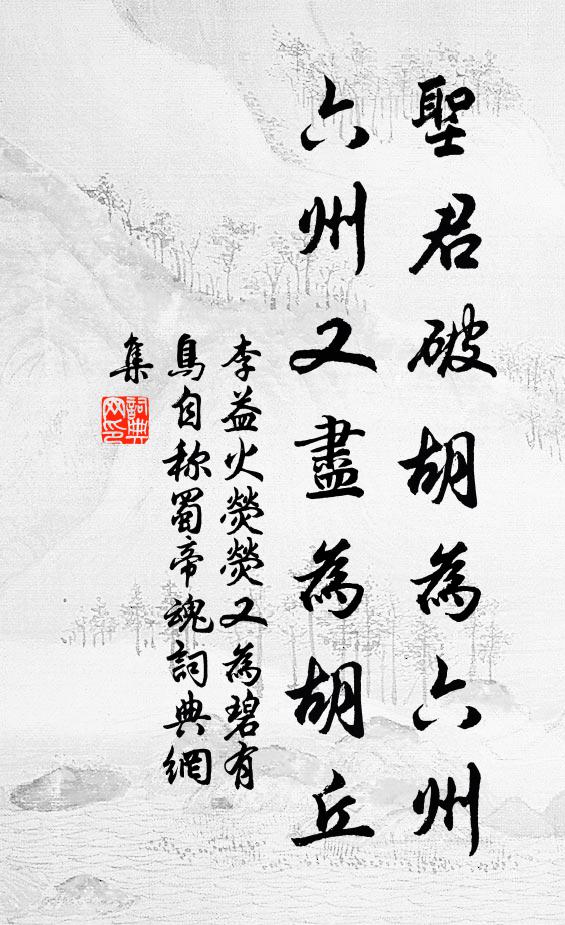 聖君破胡為六州
六州又盡為胡丘
李益火熒熒又為碧有
鳥自称蜀帝魂詞典網
集
詞典
网印